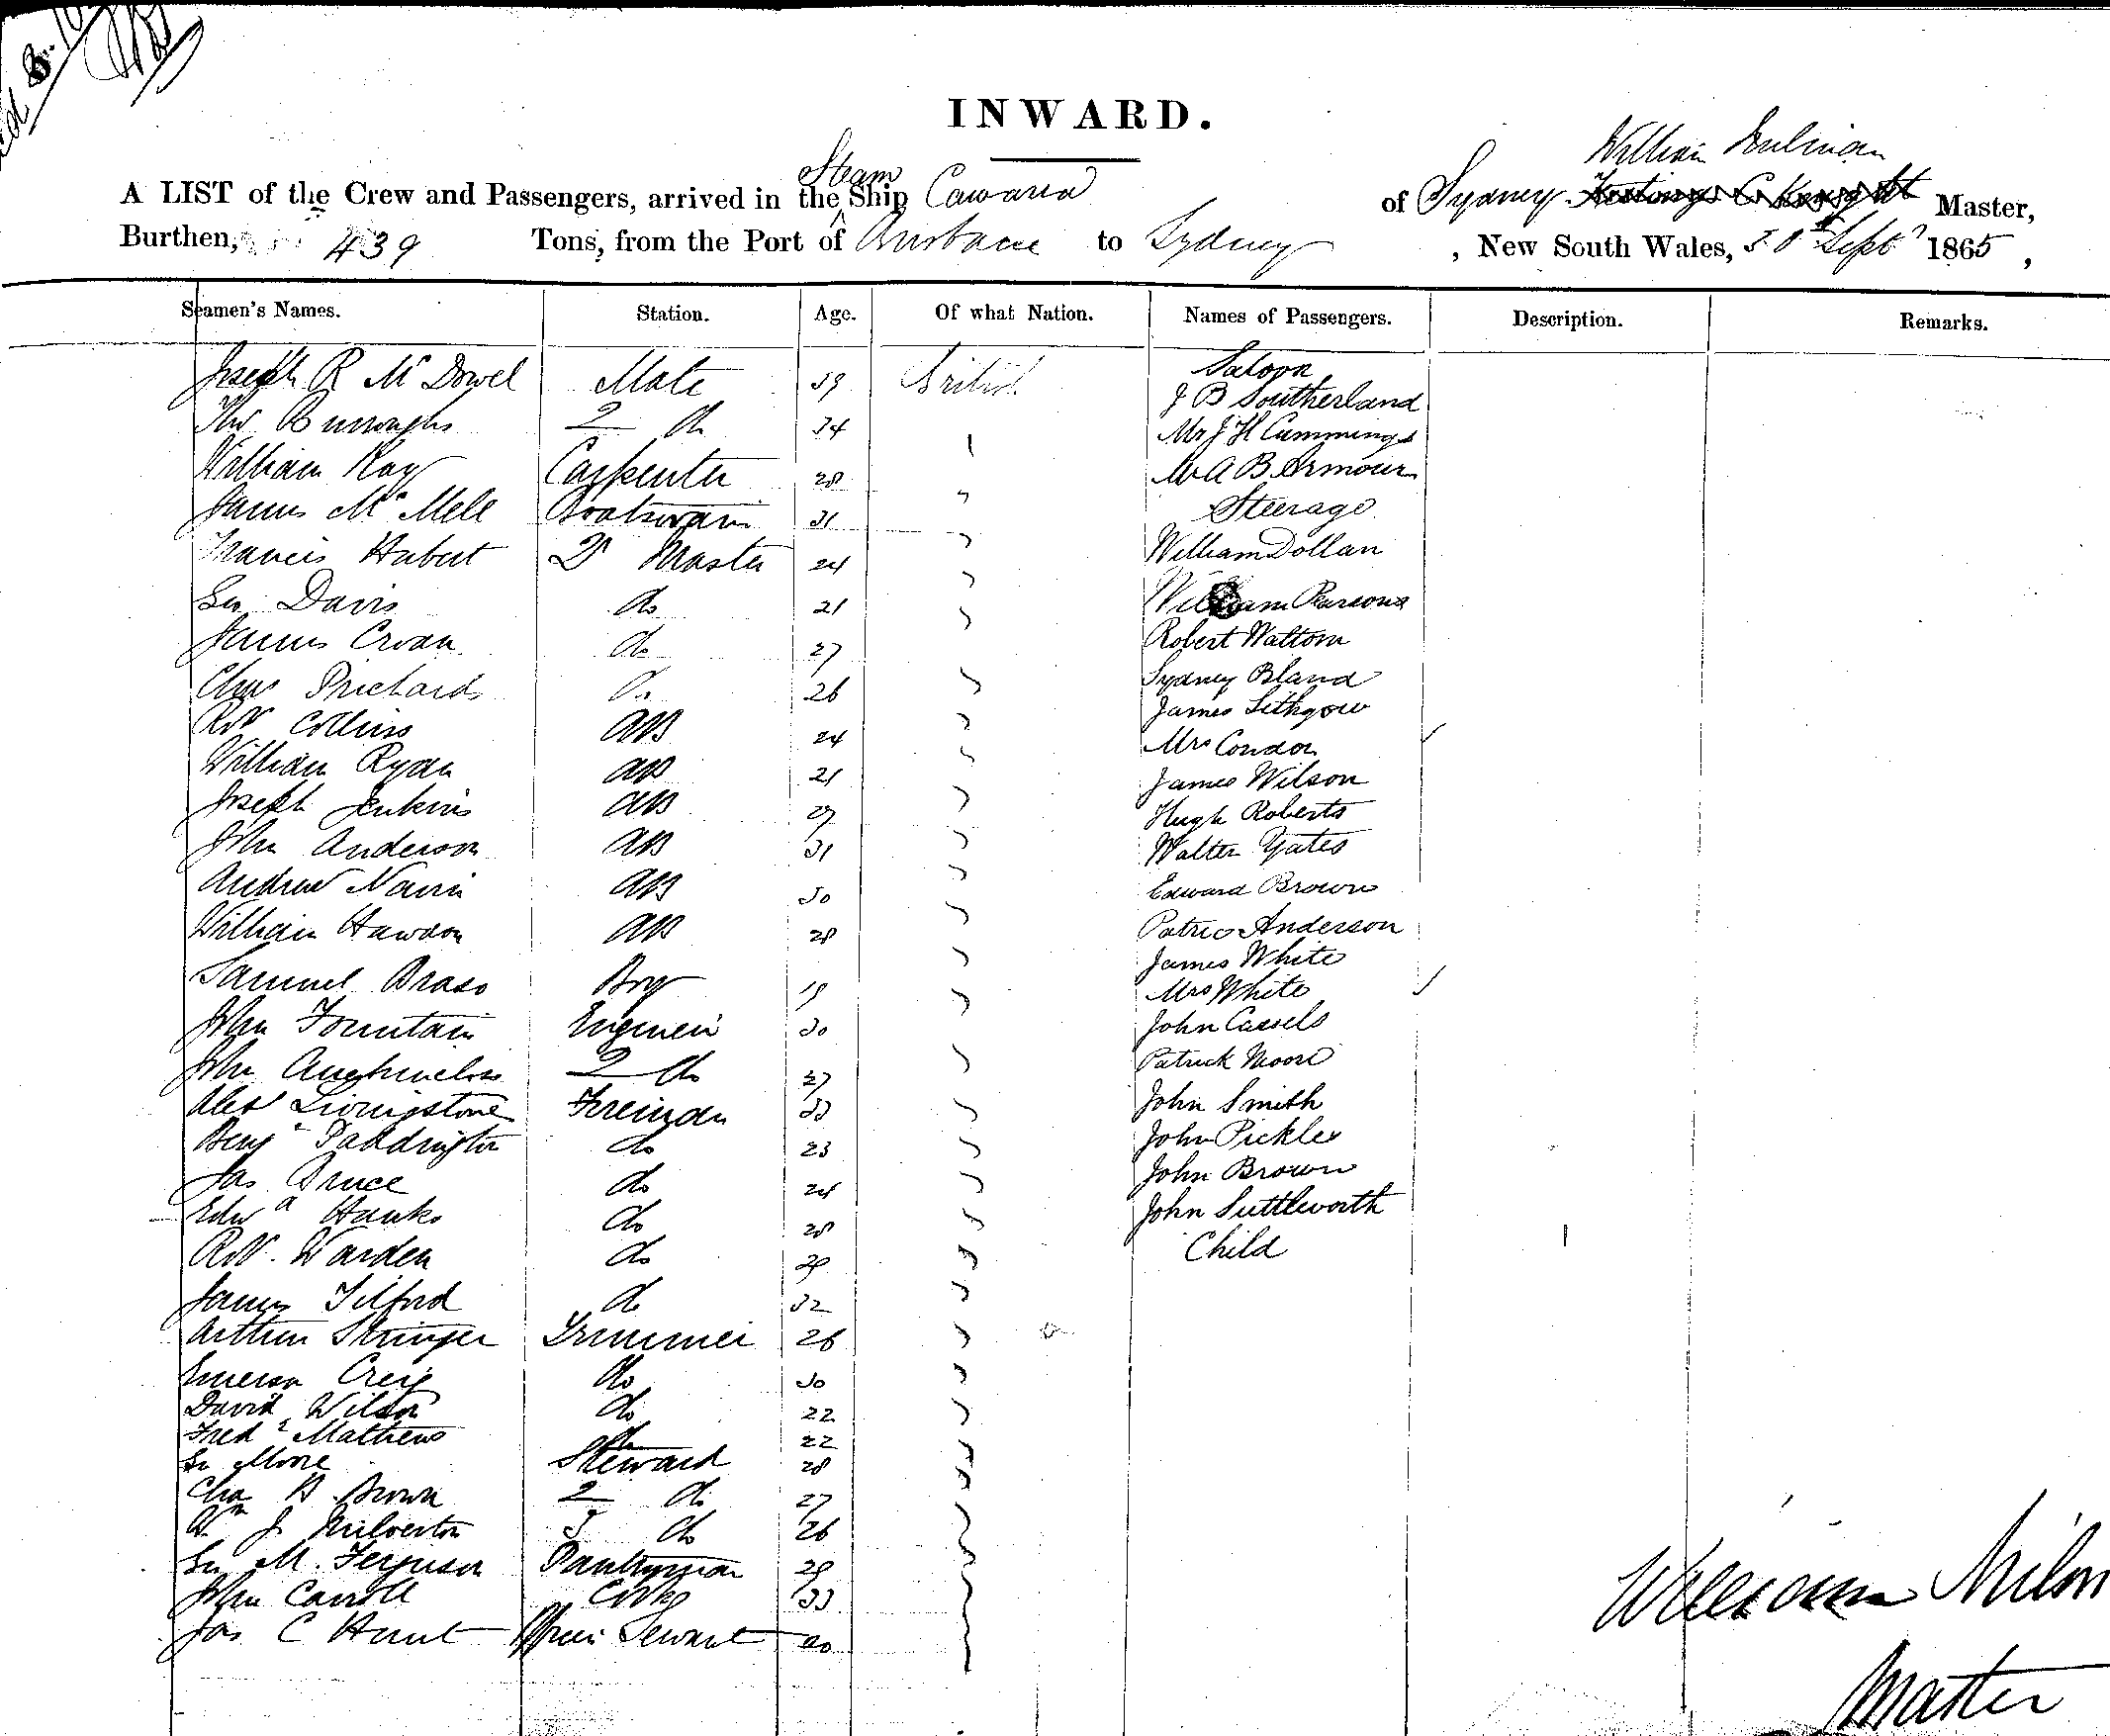 INWARD.
William
A LIST of the Crew and Passengers, arrived in the Steam Ship Cawarra of Sydney Master,
Burthen, 439 Tons, from the Port of Brisbane to Sydney, New South Wales, 30th Sept 1865,
Seamen's Names. Station. Age. Of what Nation. Names of Passengers. Description. Remarks.
Joseph R McDowel Mate 39 British Saloon
Thos Burroughs 2 do 34 J B Southerland
William Kay Carpenter 28 Mr J H Cummings
James Boatswain 31 Mr A B Armour
Francis Hubert Qr Master 24 Steerage
Geo Davis do 21 William Dollan
James Croan do 27 William Parsons
Chas Prichards do 26 Robert Wattom
Robt Collins AB 24 Sydney Bland
William Ryan AB 21 James Lithgow
Joseph Jenkins AB 27 Mrs Condon
John Anderson AB 31 James Wilson
Andrew AB 30 Hugh Roberts
William Hawdon AB 28 Walter Yates
Samuel Braso Boy 19 Edward Brown
John Fountain Engineer 30 Patric Anderson
John 2 do 27 James White
Alexr Livingstone Fireman 33 Mrs White
Benjn Paddington do 23 John Cassels
Jas Bruce do 24 Patrick Moore
Edwd Hanks do 28 John Smith
Robt Warden do 29 John Pickles
James Tilford do 32 John Brown
Arthur Stringer Trimmer 26 John Suttleworth
Emerson Creig do 30 Child
David Wilson do 22
Fredk Mathews do 22
Geo Moore Steward 28
Chas B Brown 2 do 27
Wm J Milverton 3 do 26
Geo M. Ferguson Pantryman 29
John Carroll Cook 33
Jas C Hunt Servant 20
William
Master